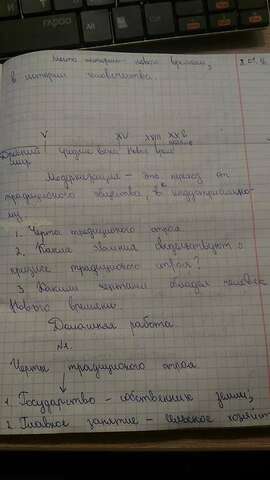 Место истории нового времени,
в истории человечества.
V XV XVIII XX в
Древний средние века Новое время
мир
Модернизация - это переход от
традиционого общества, в индустриально-
му.
1. Черты традиционого строя
2. Какие явления свидетельствуют о
кризисе традиционого строя?
3 Какими чертами обладал человек
Нового времени.
Домашняя работа
№1.
Черты традиционого строя
1. Государство - собственник земли;
2 Главное занятие - сельское хозяйст